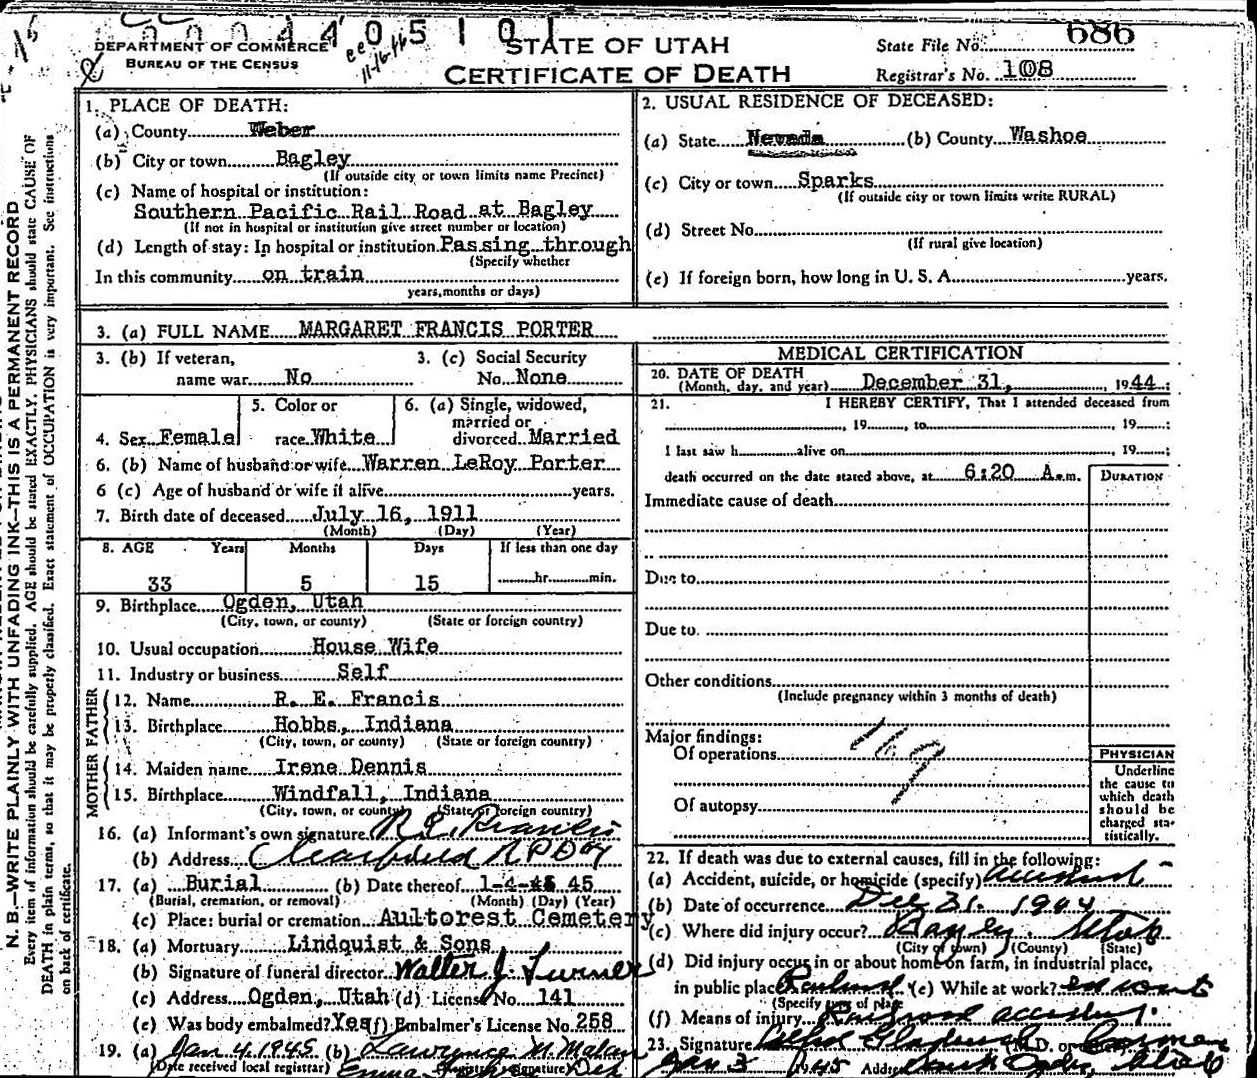 0 0 0 4 4 0 5 1 0 1
DEPARTMENT OF COMMERCE
BUREAU OF THE CENSUS
11-16-46
STATE OF UTAH
CERTIFICATE OF DEATH
State File No. 686
Registrar's No. 108
N. B.—WRITE PLAINLY WITH UNFADING INK—THIS IS A PERMANENT RECORD
Every item of information should be carefully supplied. AGE should be stated EXACTLY. PHYSICIANS should state CAUSE OF
DEATH in plain terms, so that it may be properly classified. Exact statement of OCCUPATION is very important. See instructions
on back of certificate.
1. PLACE OF DEATH:
(a) County Weber
(b) City or town Bagley
(If outside city or town limits name Precinct)
(c) Name of hospital or institution:
Southern Pacific Rail Road at Bagley
(If not in hospital or institution give street number or location)
(d) Length of stay: In hospital or institution Passing through
(Specify whether
In this community on train
years, months or days)
2. USUAL RESIDENCE OF DECEASED:
(a) State Nevada (b) County Washoe
(c) City or town Sparks
(If outside city or town limits write RURAL)
(d) Street No.
(If rural give location)
(e) If foreign born, how long in U. S. A. years.
3. (a) FULL NAME MARGARET FRANCIS PORTER
3. (b) If veteran, 3. (c) Social Security
name war No No. None
4. Sex Female 5. Color or race White 6. (a) Single, widowed, married or divorced Married
6. (b) Name of husband or wife Warren LeRoy Porter
6 (c) Age of husband or wife if alive years.
7. Birth date of deceased July 16, 1911
(Month) (Day) (Year)
8. AGE Years Months Days If less than one day
33 5 15 hr. min.
9. Birthplace Ogden, Utah
(City, town, or county) (State or foreign country)
10. Usual occupation House Wife
11. Industry or business Self
FATHER
12. Name R. E. Francis
13. Birthplace Hobbs, Indiana
(City, town, or county) (State or foreign country)
MOTHER
14. Maiden name Irene Dennis
15. Birthplace Windfall, Indiana
(City, town, or county) (State or foreign country)
16. (a) Informant's own signature R E Francis
(b) Address Clearfield RFD
17. (a) Burial (b) Date thereof 1-4-45 45
(Burial, cremation, or removal) (Month) (Day) (Year)
(c) Place: burial or cremation Aultorest Cemetery
18. (a) Mortuary Lindquist & Sons
(b) Signature of funeral director Walter J. Turner
(c) Address Ogden, Utah (d) License No. 141
(e) Was body embalmed? Yes (f) Embalmer's License No. 258
19. (a) Jan 4, 1945 (b) Lawrence N. Malan
(Date received local registrar) (Registrar's Signature)
MEDICAL CERTIFICATION
20. DATE OF DEATH
(Month, day, and year) December 31, 1944
21. I HEREBY CERTIFY, That I attended deceased from
, 19 , to , 19 ;
I last saw h alive on , 19 ;
death occurred on the date stated above, at 6:20 A.m.
DURATION
Immediate cause of death
Due to
Due to
Other conditions
(Include pregnancy within 3 months of death)
Major findings:
Of operations
169
Of autopsy
PHYSICIAN
Underline
the cause to
which death
should be
charged sta-
tistically.
22. If death was due to external causes, fill in the following:
(a) Accident, suicide, or homicide (specify) accident
(b) Date of occurrence Dec 31. 1944
(c) Where did injury occur? Bagley Utah
(City or town) (County) (State)
(d) Did injury occur in or about home on farm, in industrial place,
in public place Railroad (e) While at work?
(Specify type of place)
(f) Means of injury Railroad accident.
23. Signature (M.D. or
Jan 3 1945 Address Ogden, Utah